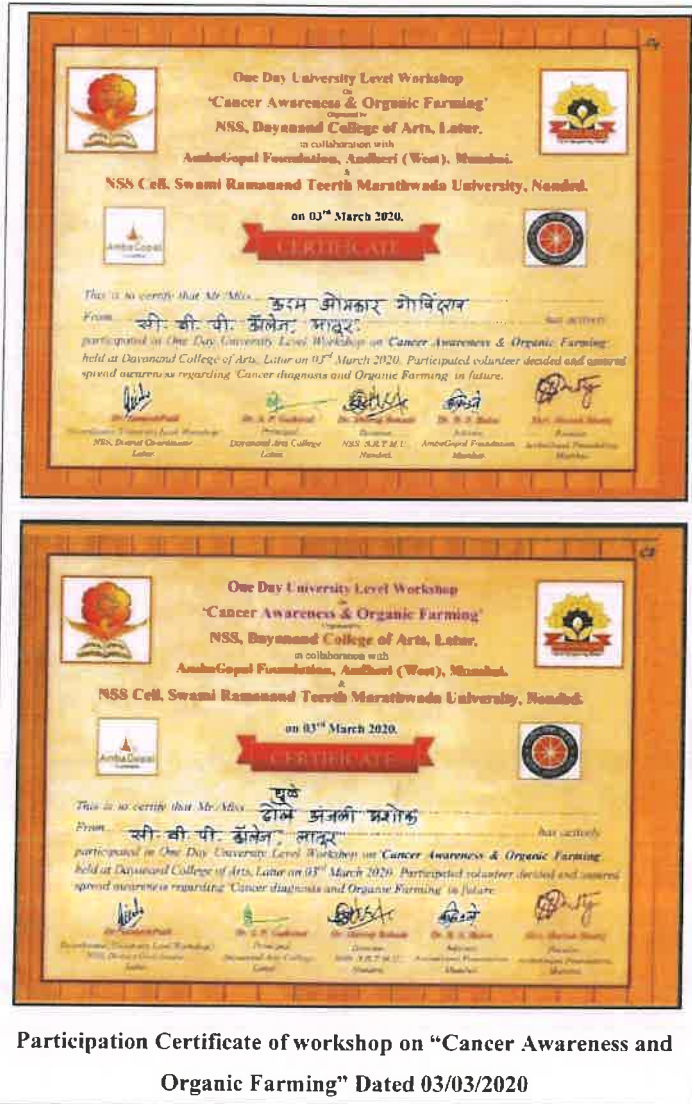 One Day University Level Workshop
On
'Cancer Awareness & Organic Farming'
Organized by
NSS, Dayanand College of Arts, Latur.
in collaboration with
AmbaGopal Foundation, Andheri (West), Mumbai.
&
NSS Cell, Swami Ramanand Teerth Marathwada University, Nanded.
on 03rd March 2020.
AmbaGopal
CERTIFICATE
This is to certify that Mr./Miss. कदम ओमकार गोविंदराव
From सी. बी. पी. कॉलेज, लातूर. has actively
participated in One Day University Level Workshop on 'Cancer Awareness & Organic Farming'
held at Dayanand College of Arts, Latur on 03rd March 2020. Participated volunteer decided and assured
spread awareness regarding 'Cancer diagnosis and Organic Farming' in future.
Principal
NSS, District Coordinator Dayanand Arts College NSS S.R.T.M.U. AmbaGopal Foundation
Latur. Latur. Nanded. Mumbai. Mumbai.
One Day University Level Workshop
On
'Cancer Awareness & Organic Farming'
Organized by
NSS, Dayanand College of Arts, Latur.
in collaboration with
AmbaGopal Foundation, Andheri (West), Mumbai.
&
NSS Cell, Swami Ramanand Teerth Marathwada University, Nanded.
on 03rd March 2020.
AmbaGopal
CERTIFICATE
धुळे
This is to certify that Mr./Miss. ढोले अंजली अशोक
From सी. बी. पी. कॉलेज, लातूर has actively
participated in One Day University Level Workshop on 'Cancer Awareness & Organic Farming'
held at Dayanand College of Arts, Latur on 03rd March 2020. Participated volunteer decided and assured
spread awareness regarding 'Cancer diagnosis and Organic Farming' in future.
Principal
Participation Certificate of workshop on "Cancer Awareness and
Organic Farming" Dated 03/03/2020